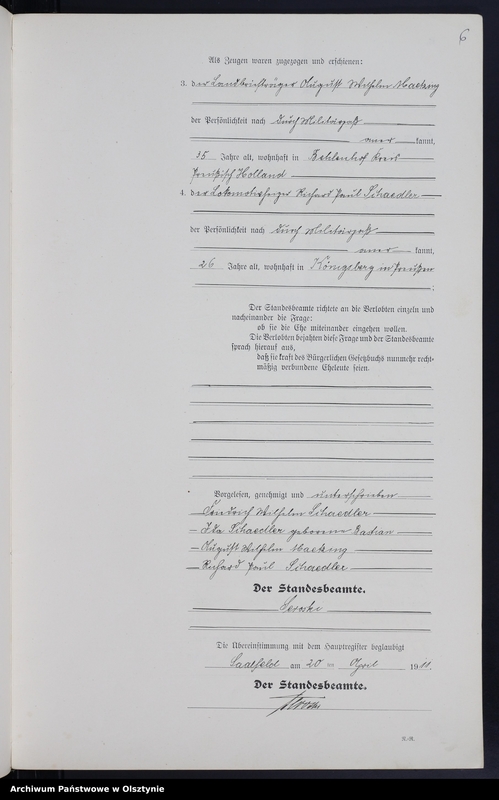 6
Als Zeugen waren zugezogen und erschienen:
3. der Landbriefträger August Wilhelm
der Persönlichkeit nach durch Militärpaß
aner kannt,
35 Jahre alt, wohnhaft in Kreis
Preußisch Holland
4. der Lokomotivheizer Richard Paul Schaedler
der Persönlichkeit nach durch Militärpaß
aner kannt,
26 Jahre alt, wohnhaft in Königsberg in Preußen
Der Standesbeamte richtete an die Verlobten einzeln und
nacheinander die Frage:
ob sie die Ehe miteinander eingehen wollen.
Die Verlobten bejahten diese Frage und der Standesbeamte
sprach hierauf aus,
daß sie kraft des Bürgerlichen Gesetzbuchs nunmehr recht-
mäßig verbundene Eheleute seien.
Vorgelesen, genehmigt und unterschrieben
Friedrich Wilhelm Schaedler
Ida Schaedler geborene Bastian
August Wilhelm
Richard Paul Schaedler
Der Standesbeamte.
Die Übereinstimmung mit dem Hauptregister beglaubigt
Saalfeld am 20 ten April 1911.
Der Standesbeamte.
Archiwum Państwowe w Olsztynie